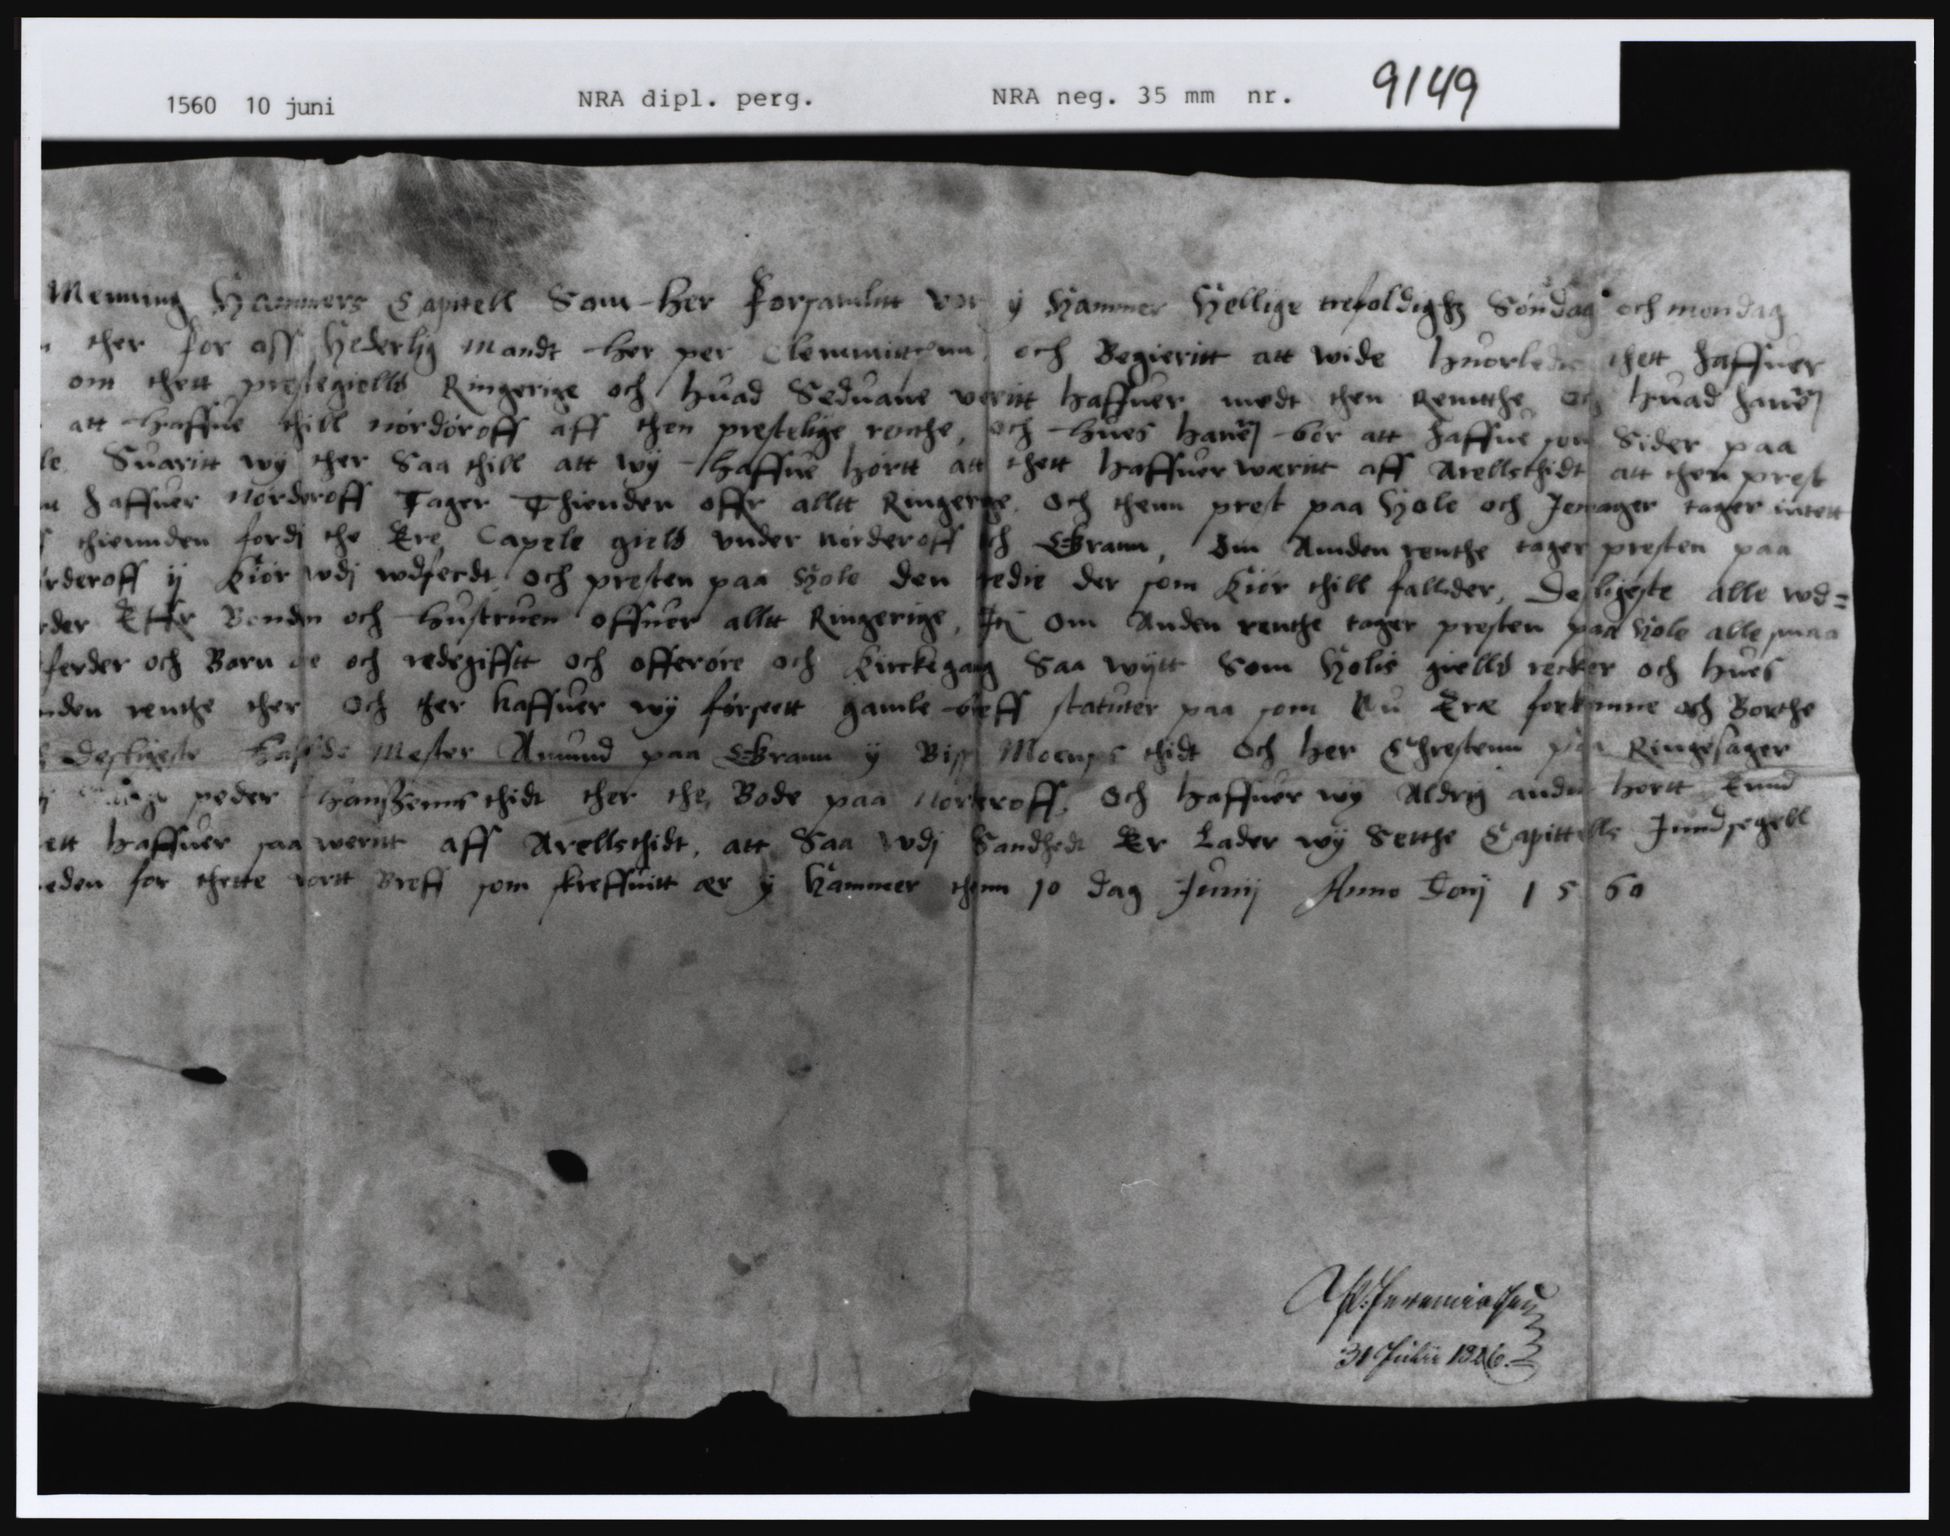 1560 10 juni NRA dipl. perg. NRA neg. 35 mm nr. 9149
Menning Hammers Capitell Som her Forsamlitt var y Hammer Hellige trefoldighz Søndag och mondag
ther for oss Hederlig Mandt her per Clemmittssnn, och Begieritt att wide huorledis thett haffuer
om thett prestegielld Ringerige och huad Seduane veritt haffuer medt then Renntthe och huad hanu
att haffue thill nørdøroff aff then prestelige renthe, och hues hanu bør att haffue som Sider paa
le Suaritt wy ther Saa thill att wy haffue hørtt att thett haffuer wæritt aff Arellsthidt att then prest
haffuer Nørderoff Tager Thienden offr alltt Ringerige. Och thenn prest paa Hole och Jernager tager intett
thiennden fordj the Ere Capele gield vnder nørderoff och Grann, Om Annden renthe tager presten paa
rderoff ij kiør wdj wdferdt och presten paa Hole den tredie der som kiør thill fallder, Desligeste alle wd=
rder Effr Bonden och hustruen offuer alltt Ringerige, Jt om Anden renthe tager presten paa Hole alle smaa
ferder och Barn øe och redegifftt och offerøre och kirckegang Saa wytt Som Holis gielld recker och hues
nden renthe ther Och ther haffuer wy førsett gamle breff statuter paa som Nu Eræ forkomne och Borthe
Desligeste haffde Mester Amund paa Grann y Bisp Moenss thidt Och her Chrestenn paa Ringesager
peder hanssenns thidt ther the Bode paa Nørderoff. Och haffuer wy Aldrig anden hørtt End
ett haffuer saa weritt aff Arellsthidt, att Saa wdj Sandhedt Er Lader wy Setthe Capittells Jnndsegell
eden for thette vortt Breff som skreffuitt ær y Hammer thenn 10 dag Junij Anno Donj 1560
31 Julii 1826.